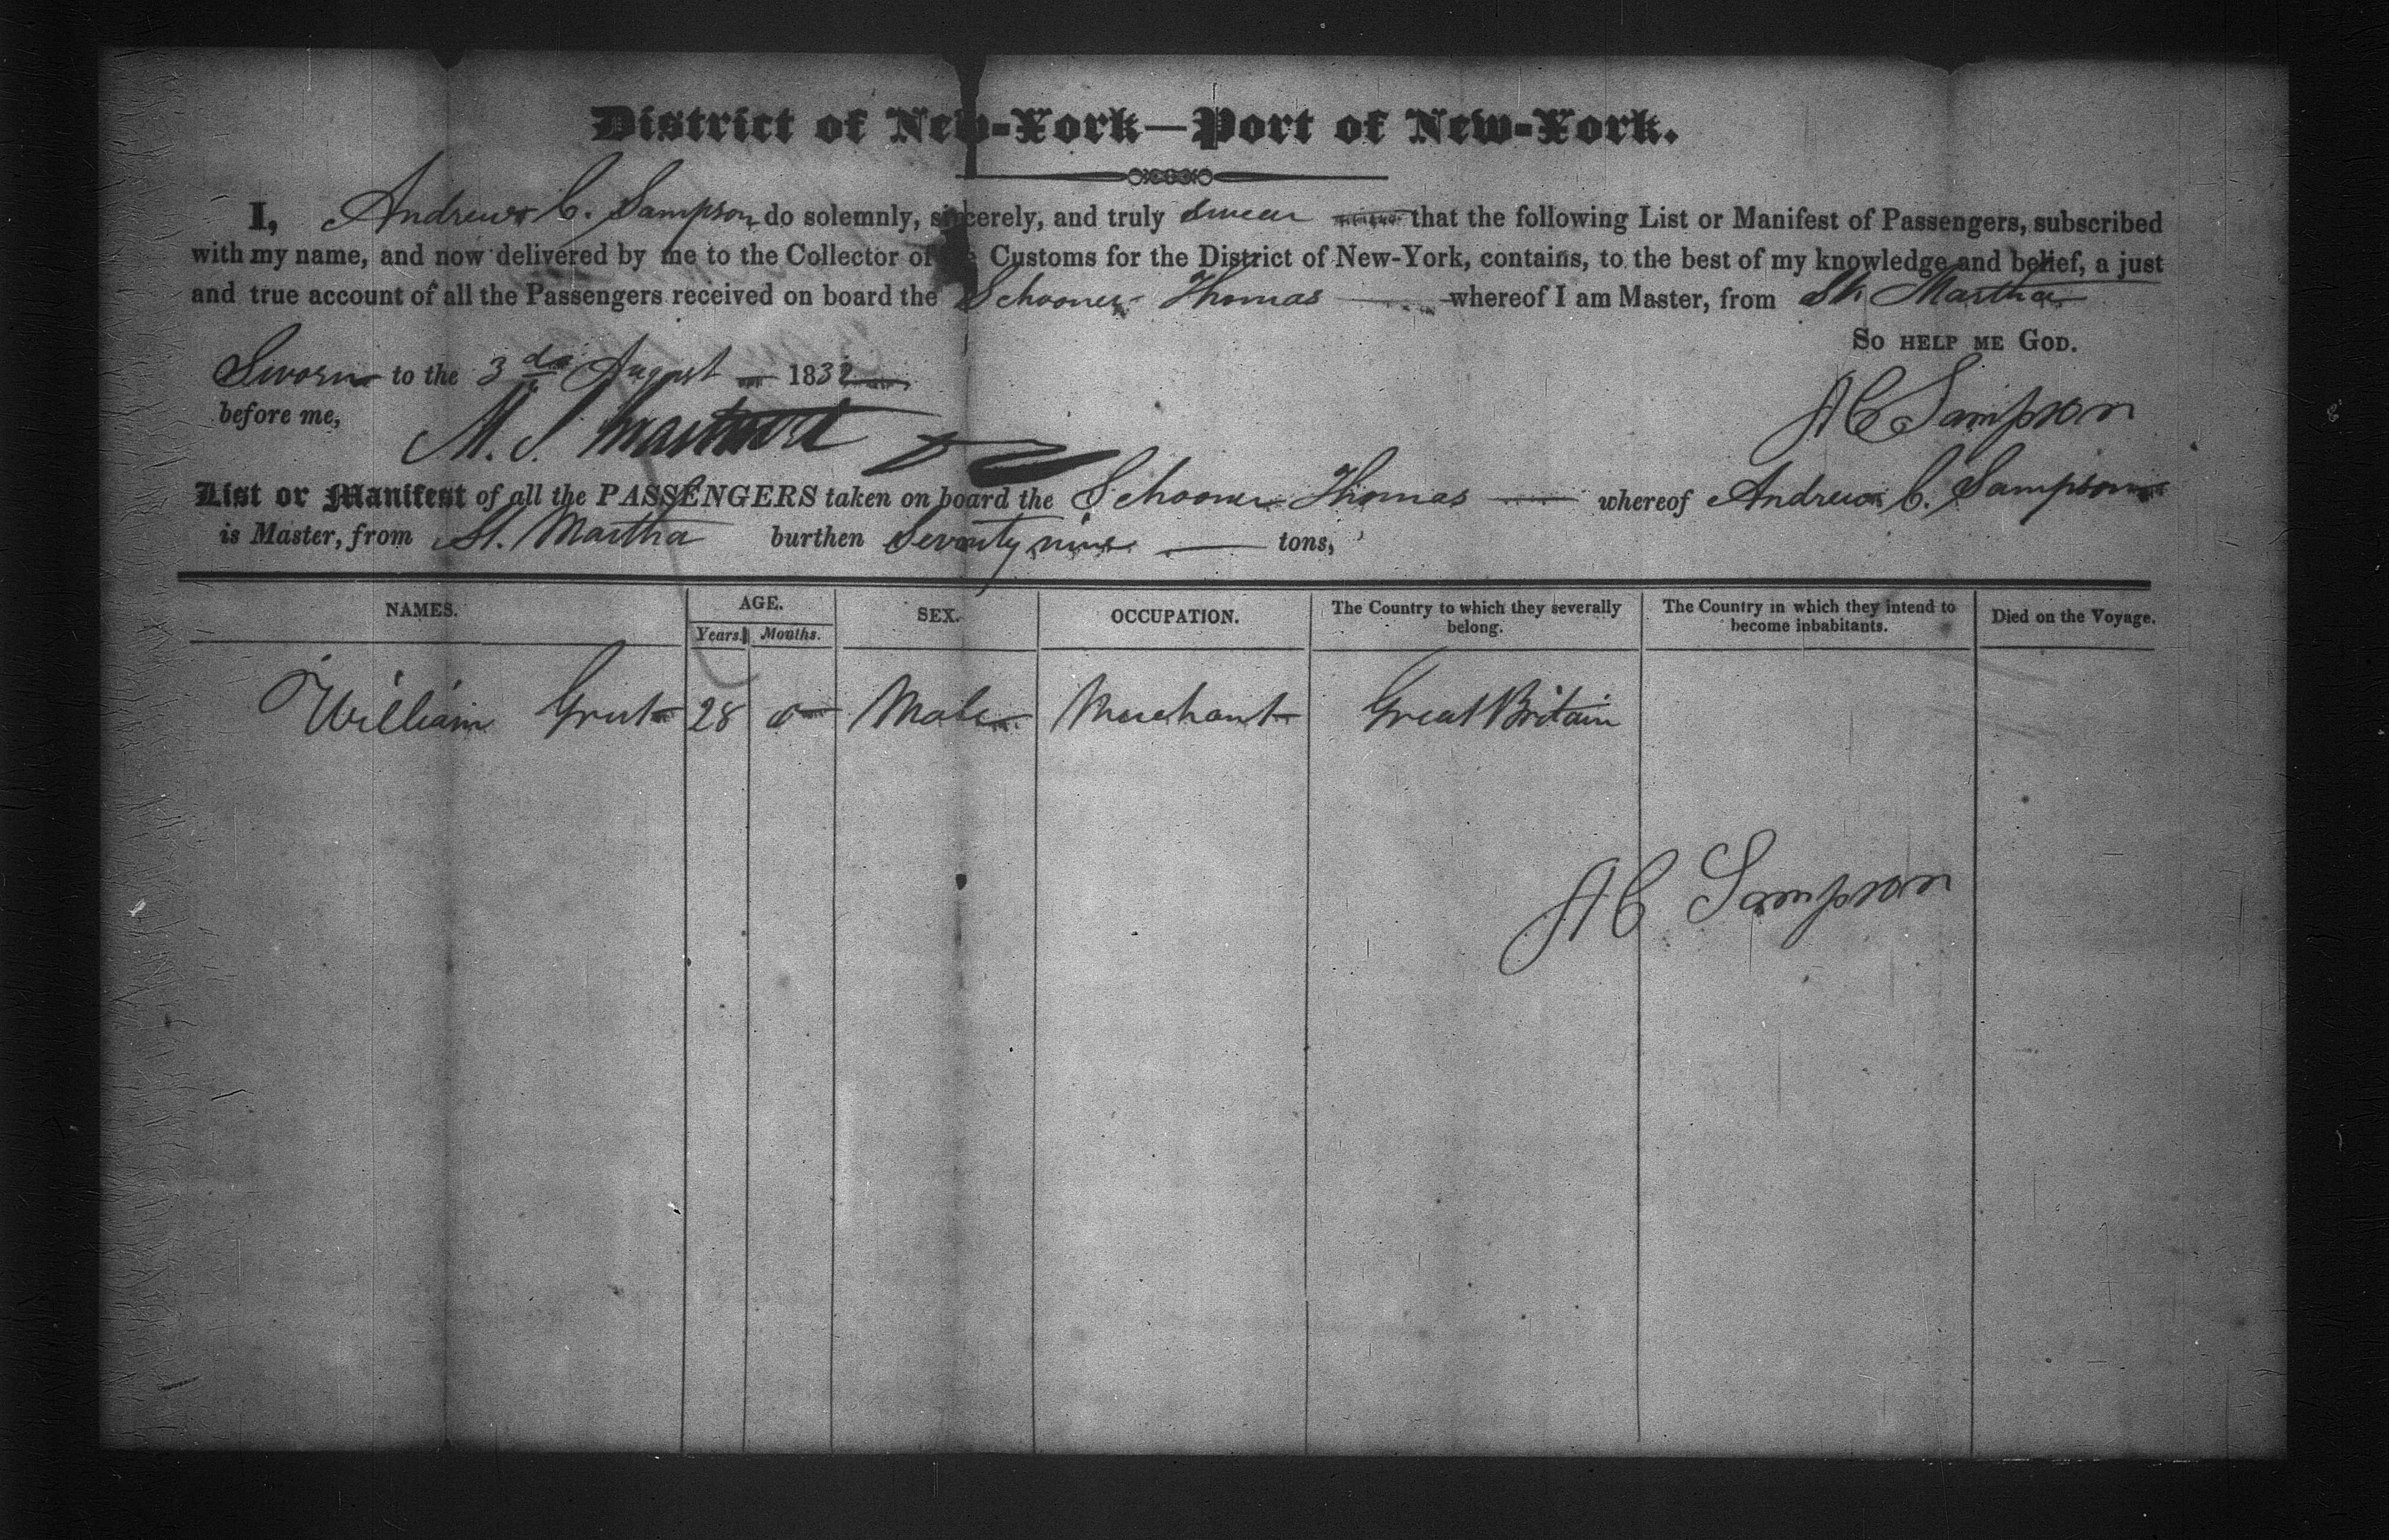 District of New-York—Port of New-York.
I, Andrew C. Sampson do solemnly, sincerely, and truly swear that the following List or Manifest of Passengers, subscribed
with my name, and now delivered by me to the Collector of Customs for the District of New-York, contains, to the best of my knowledge and belief, a just
and true account of all the Passengers received on board the Schooner Thomas whereof I am Master, from St. Martha
So help me God.
Sworn to the 3 August 1832
before me,
A C Sampson
M. S.
List or Manifest of all the PASSENGERS taken on board the Schooner Thomas whereof Andrew C. Sampson
is Master, from St. Martha burthen Seventy nine tons,
NAMES. AGE. SEX. OCCUPATION. The Country to which they severally belong. The Country in which they intend to become inhabitants. Died on the Voyage.
Years. Months.
William 28 Male Merchant Great Britain
A C Sampson